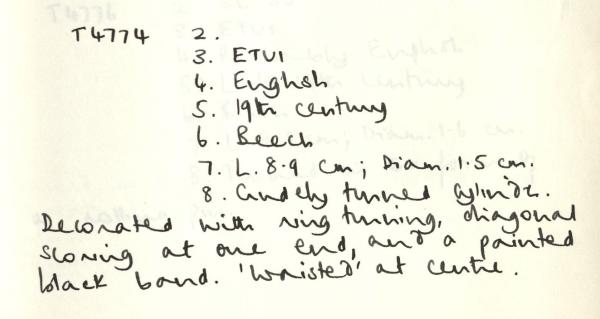 T4774 2.
3. ETUI
4. English
5. 19th century
6. Beech
7. L. 8.9 cm; Diam. 1.5 cm.
8. Crudely turned cylinder.
Decorated with ring turning, diagonal
scoring at one end, and a painted
black band. 'Waisted' at centre.